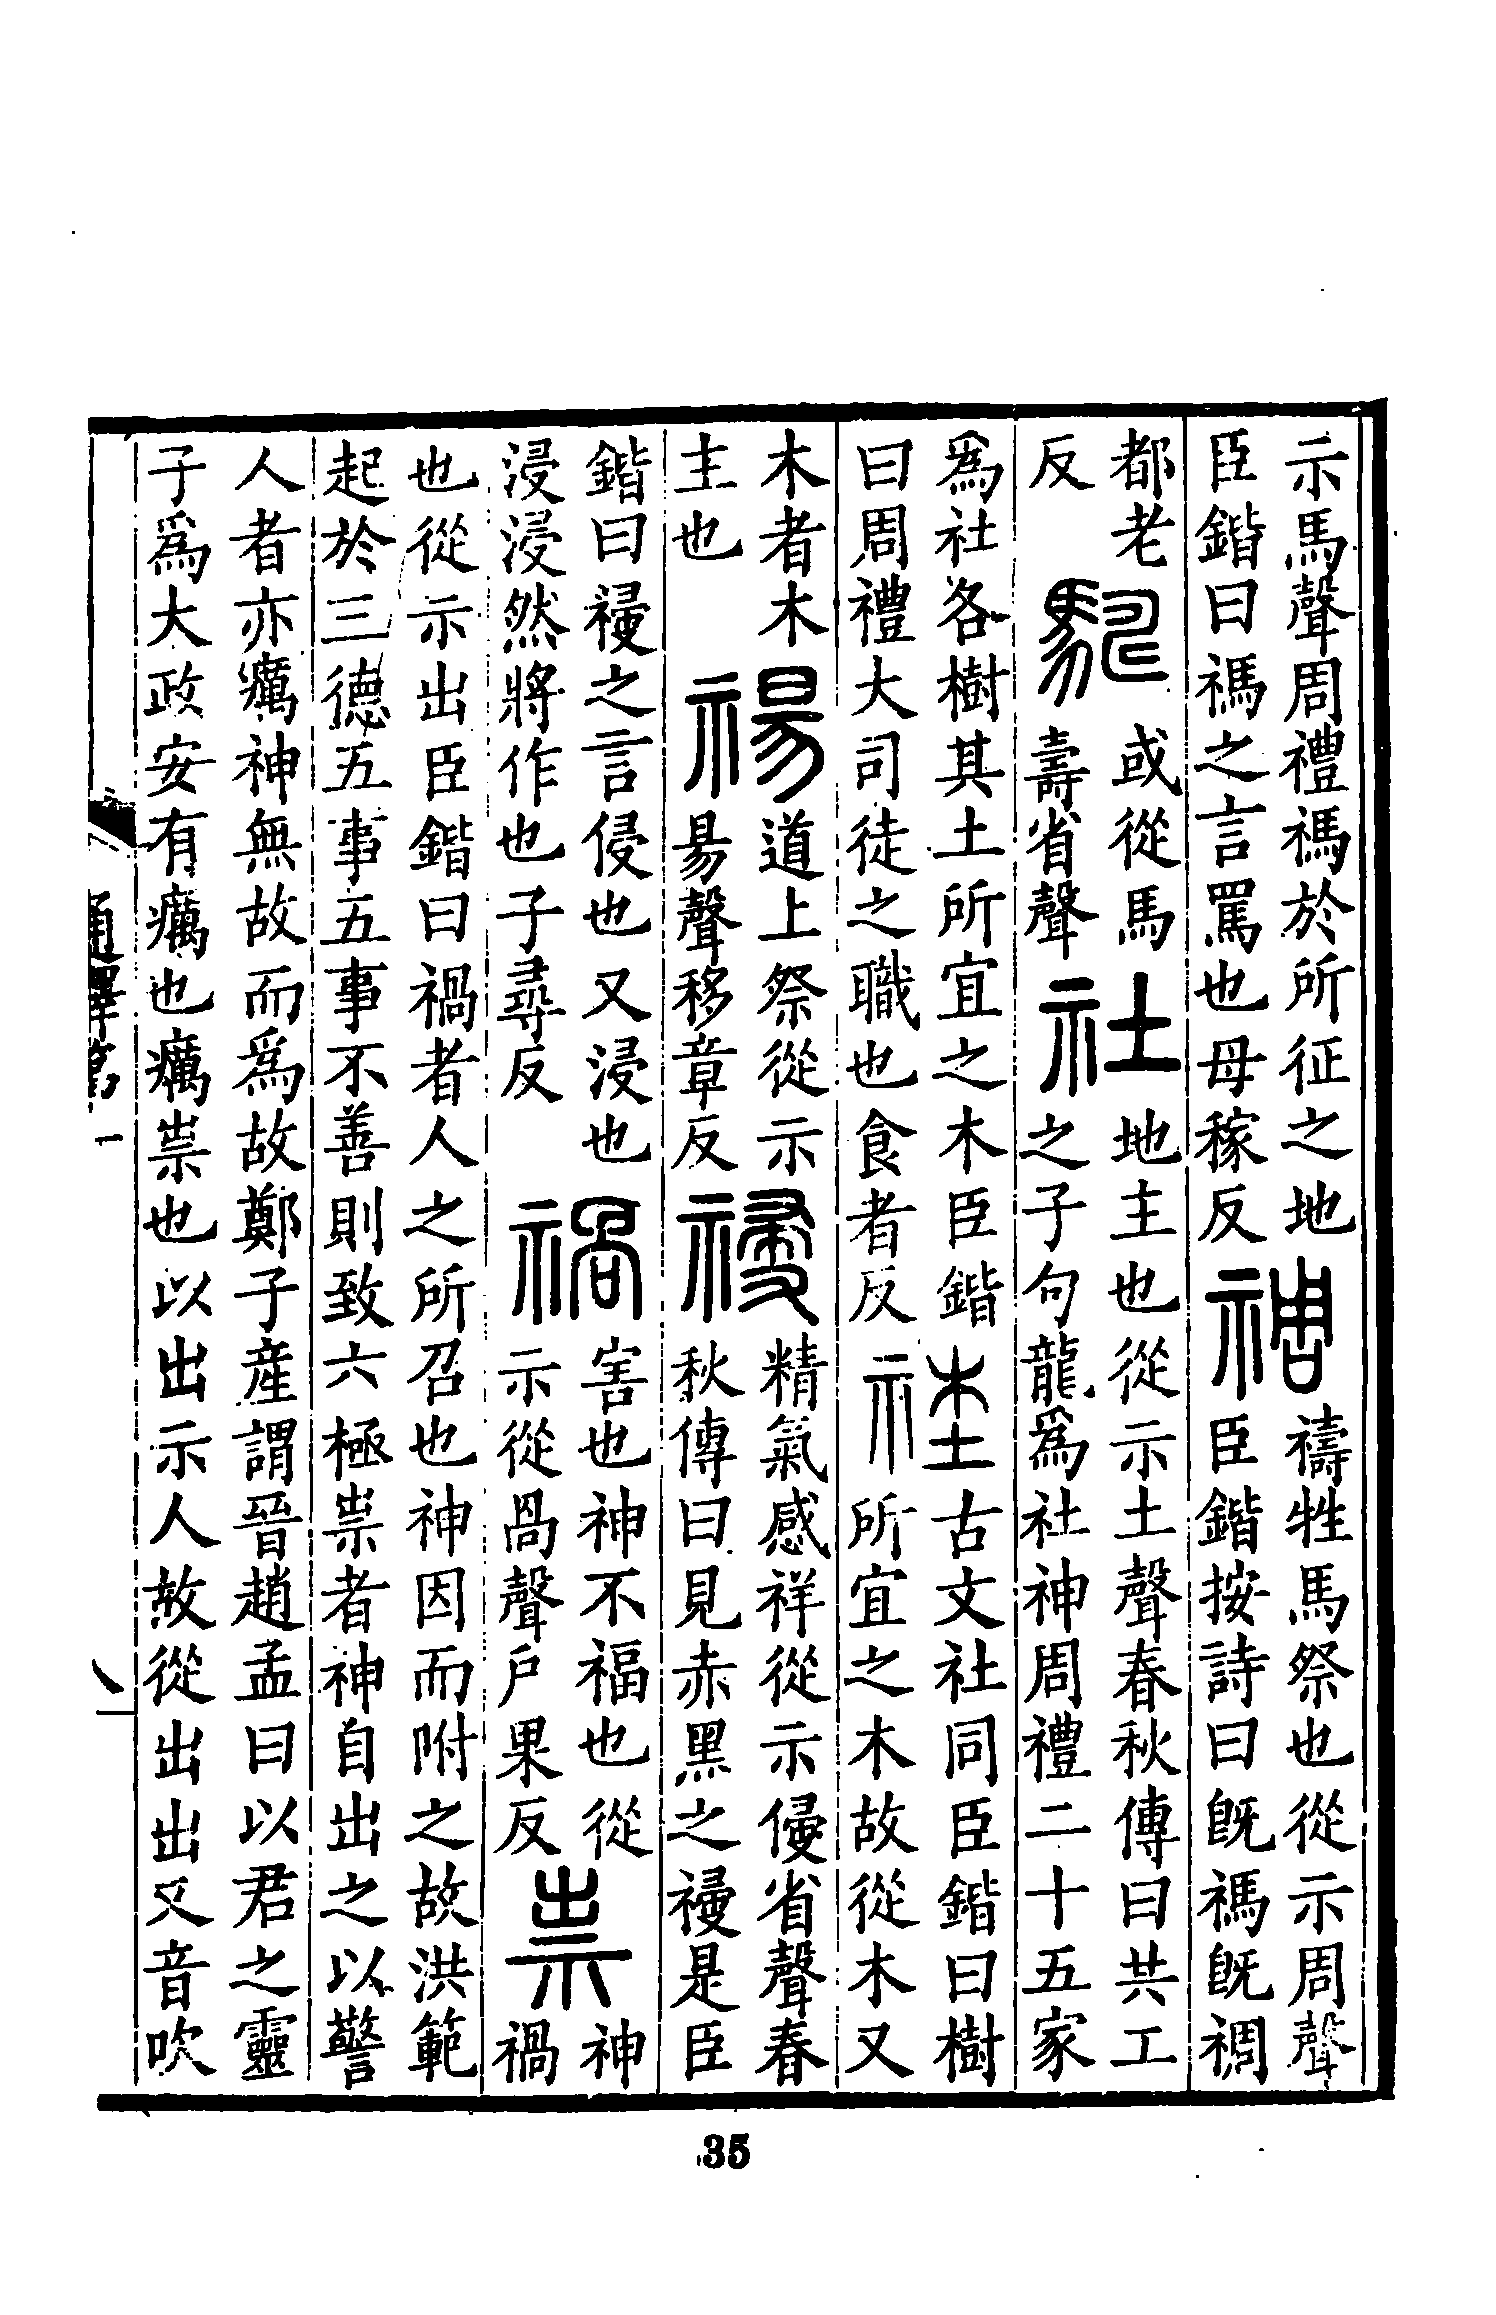 示馬聲周禮禡於所征之地
臣鍇曰禡之言罵也母稼反
禂
禱牲馬祭也從示周聲
臣鍇按詩曰旣禡旣禂
都老
反
𩢱
或從馬
壽省聲
社
地主也從示土聲春秋傳曰共工
之子句龍爲社神周禮二十五家
爲社各樹其土所宜之木臣鍇
曰周禮大司徒之職也食者反
𥙭
古文社同臣鍇曰樹
所宜之木故從木又
木者木
主也
禓
道上祭從示
昜聲移章反
祲
精氣感祥從示侵省聲春
秋傳曰見赤黑之祲是臣
鍇曰祲之言侵也又浸也
浸浸然將作也子尋反
禍
害也神不福也從
示從咼聲戶果反
祟
神
禍
也從示出臣鍇曰禍者人之所召也神因而附之故洪範
起於三德五事五事不善則致六極祟者神自出之以警
人者亦癘神無故而爲故鄭子産謂晉趙孟曰以君之靈
子爲大政安有癘也癘祟也以出示人故從出出又音吹
通釋第一
35